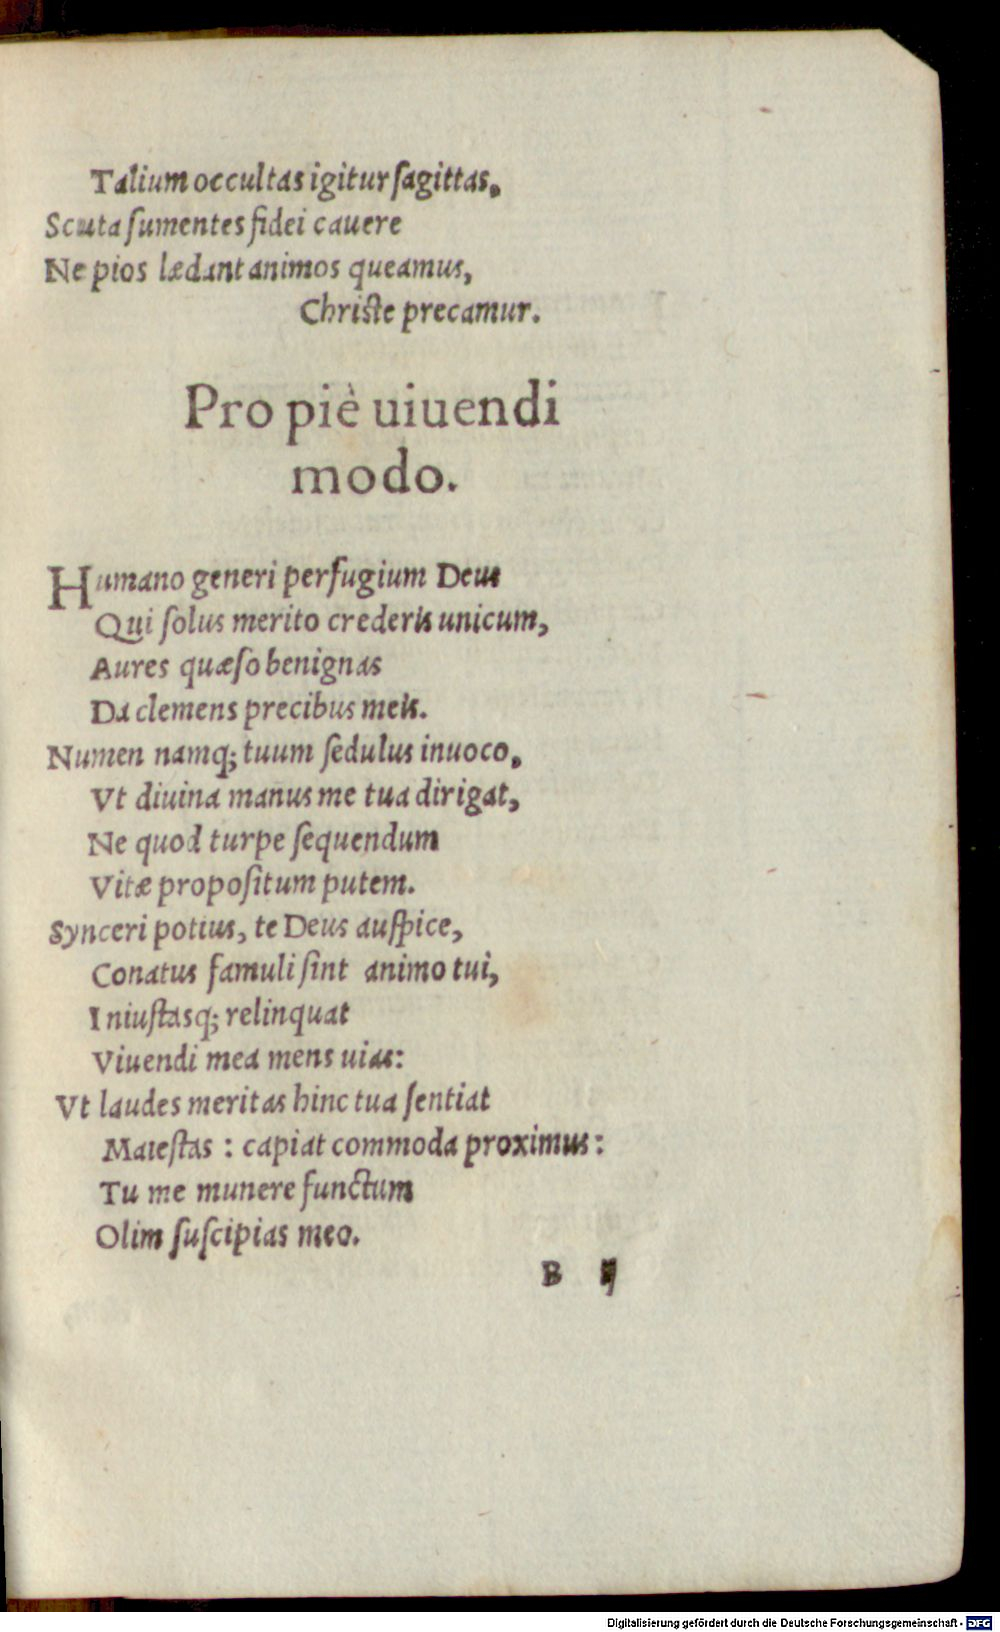 Talium occultas igitur ſagittas,
Scuta ſumentes fidei cauere
Ne pios lædant animos queamus,
Chriſte precamur.
Pro piè uiuendi
modo.
Humano generi perfugium Deus
Qui ſolus merito crederis unicum,
Aures quæſo benignas
Da clemens precibus meis.
Numen namq; tuum ſedulus inuoco,
Vt diuina manus me tua dirigat,
Ne quod turpe ſequendum
Vitæ propoſitum putem.
Synceri potius, te Deus auſpice,
Conatus famuli ſint animo tui,
Iniuſtasq; relinquat
Viuendi mea mens uias:
Vt laudes meritas hinc tua ſentiat
Maieſtas : capiat commoda proximus :
Tu me munere functum
Olim ſuſcipias meo.
B
Digitalisierung gefördert durch die Deutsche Forschungsgemeinschaft - DFG